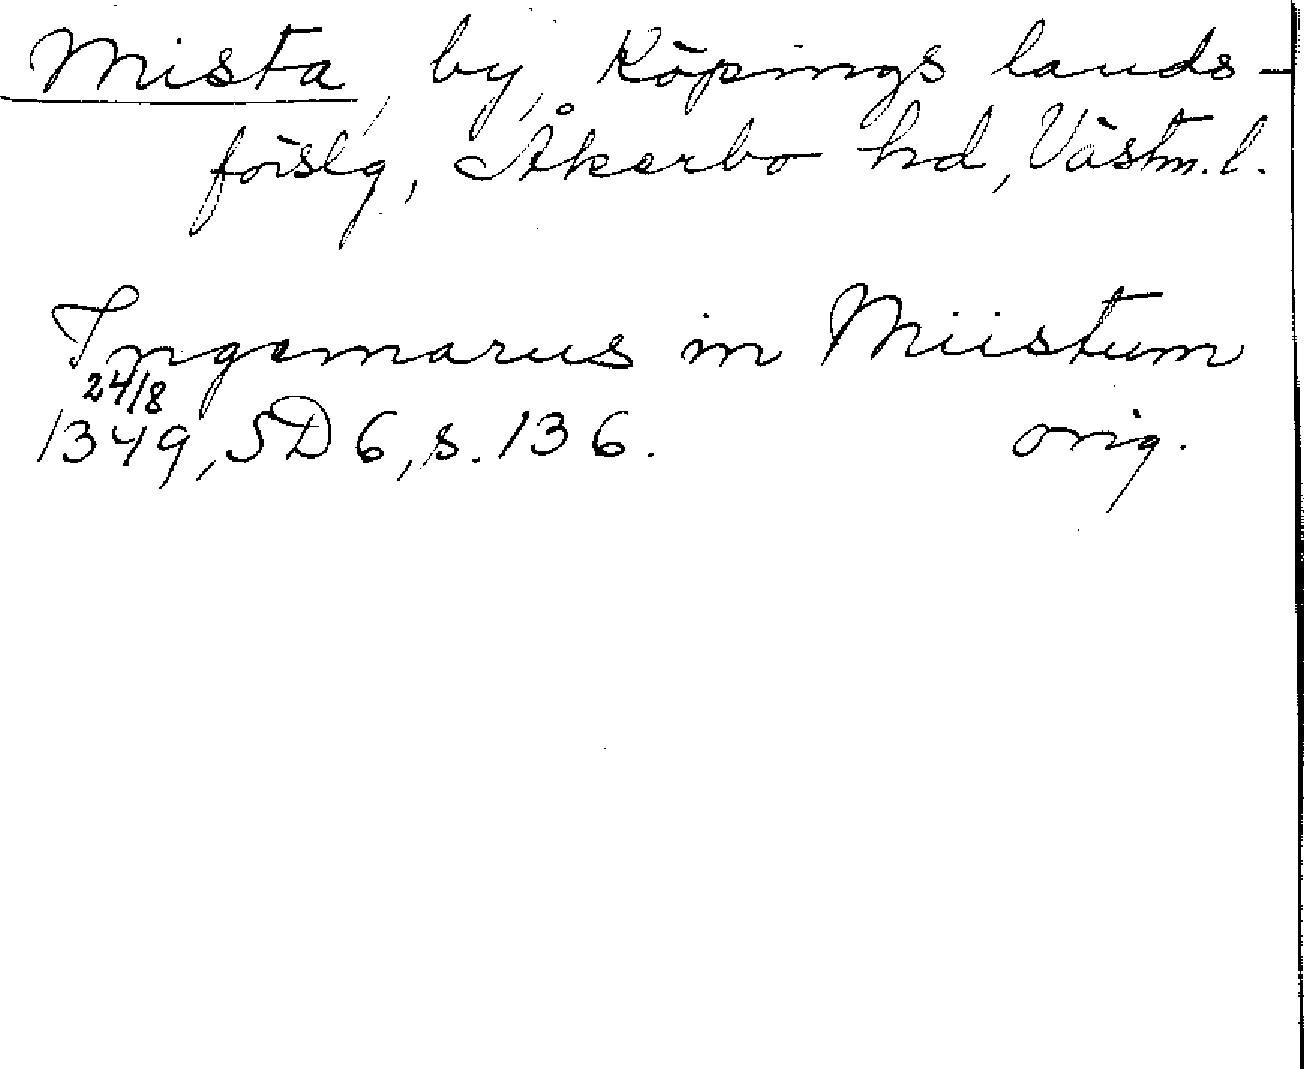 Mista, by, Köpings lands-
förslg, Åkerbo hd, Västm. l.
Ingemarus in Miistum
24/8
1349, SD 6, s. 136. orig.